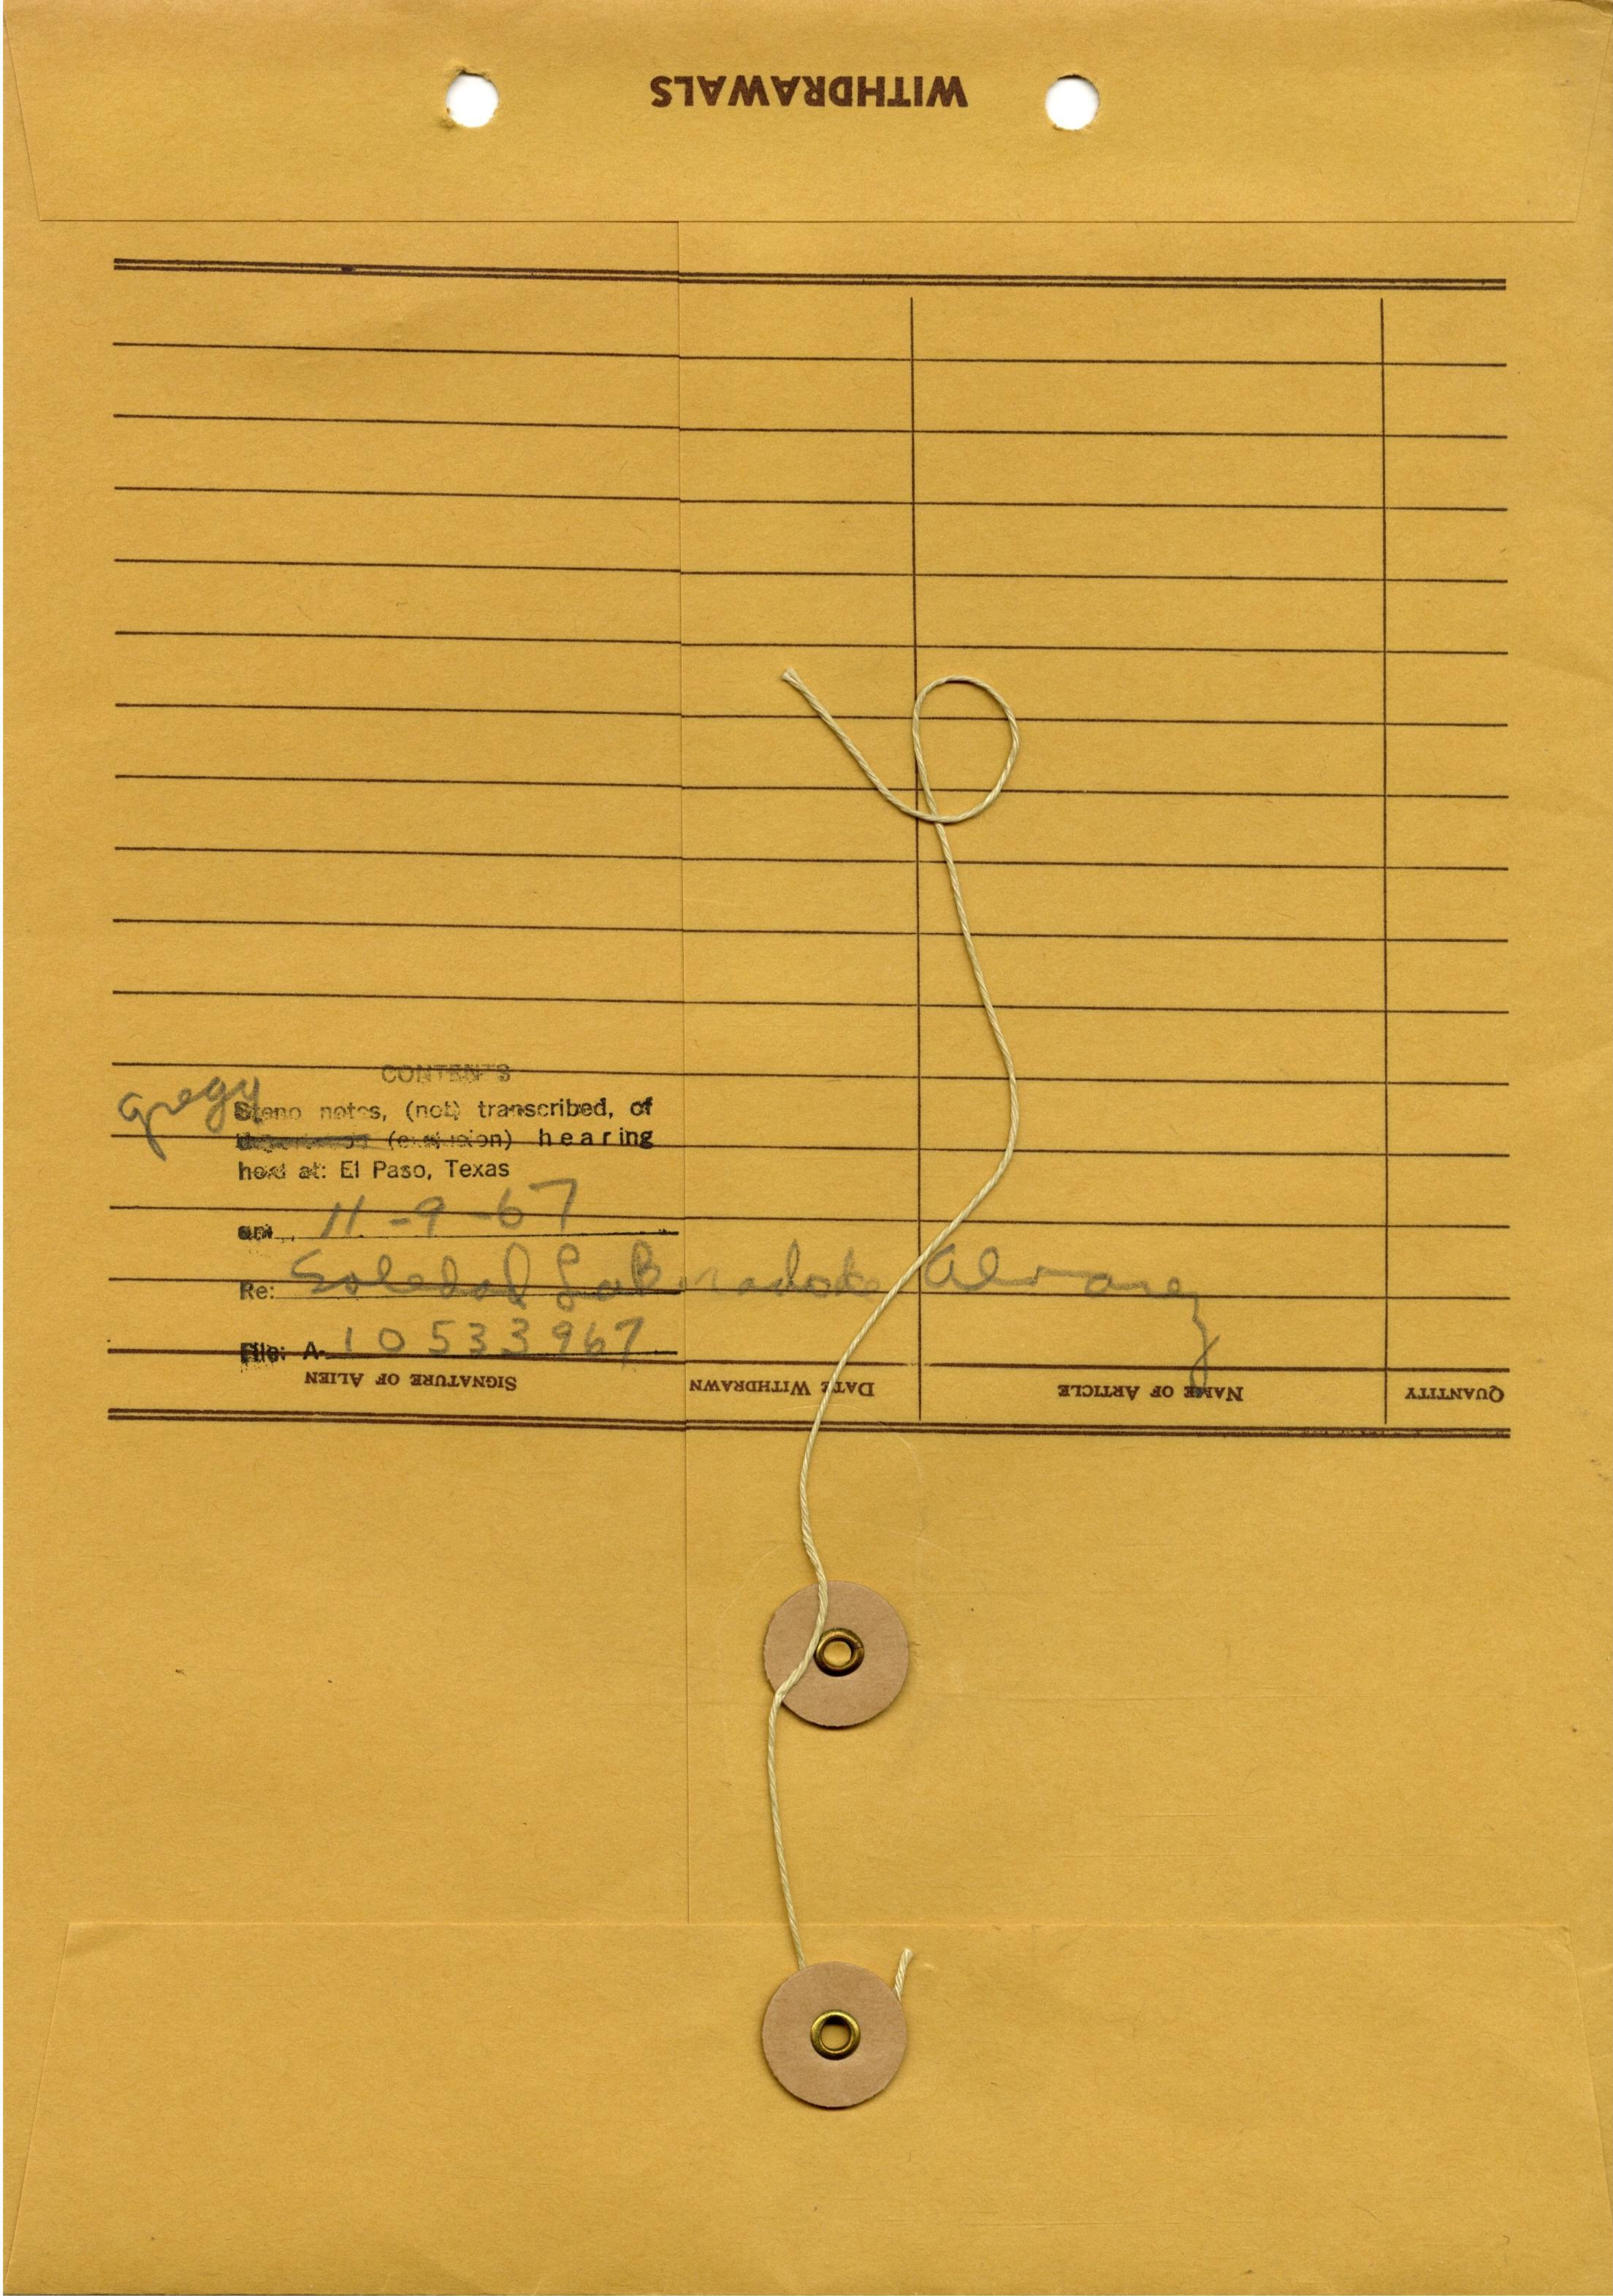 WITHDRAWALS
CONTENTS
Gregg
Steno notes, (not) transcribed, of
(exclusion) hearing
held at: El Paso, Texas
on 11-9-67
Re: Soledad Alvarez
File: A-10 533 967
SIGNATURE OF ALIEN DATE WITHDRAWN NAME OF ARTICLE QUANTITY